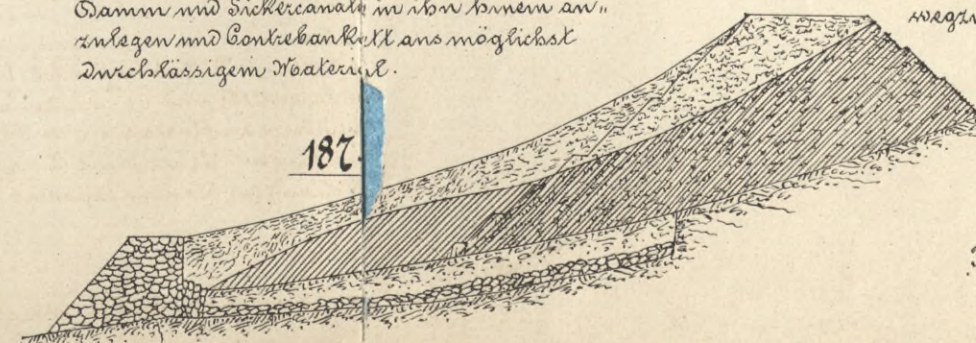 Damm und Sickercanäle in ihn hinein an„
zulegen und Contrebankett aus möglichst
durchlässigem Material.
187.